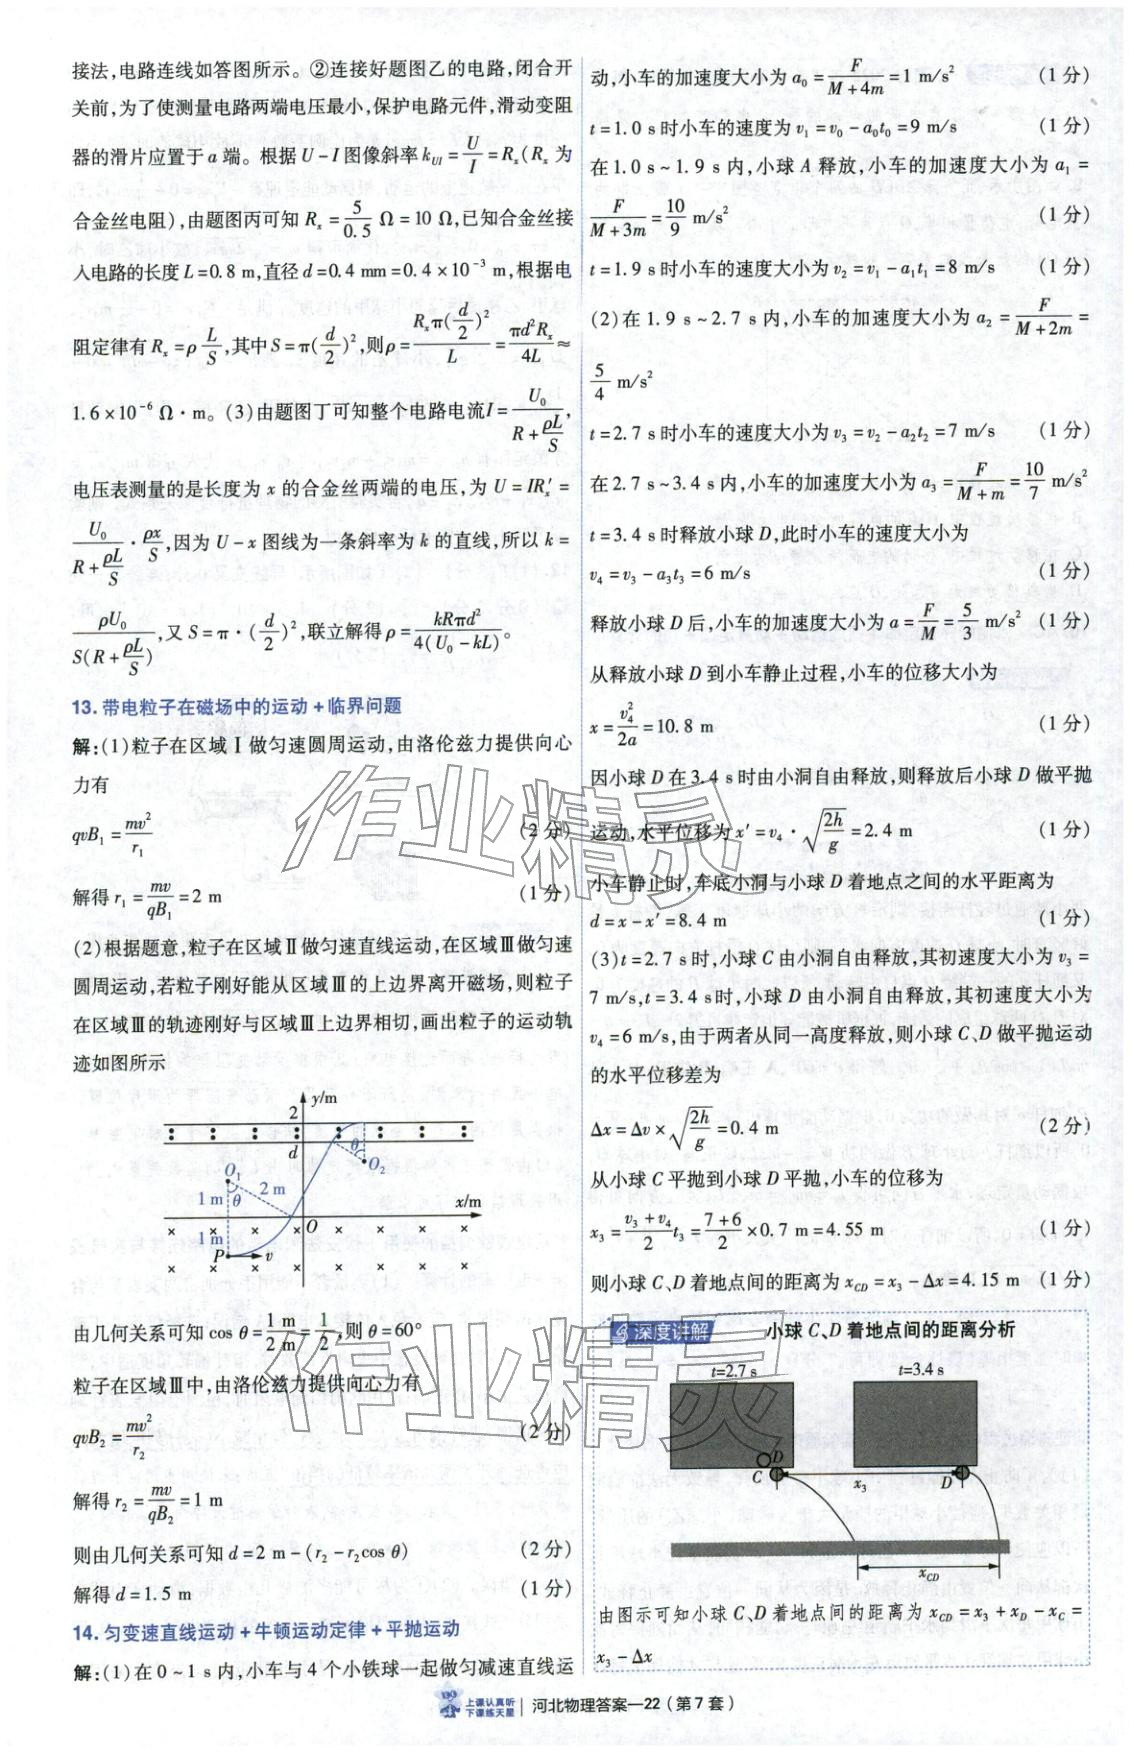 接法,电路连线如答图所示。②连接好题图乙的电路,闭合开
关前,为了使测量电路两端电压最小,保护电路元件,滑动变阻
器的滑片应置于 a 端。根据 U－I 图像斜率 k_{UI} = U/I = R_x(R_x 为
合金丝电阻),由题图丙可知 R_x = 5/0.5 Ω = 10 Ω,已知合金丝接
入电路的长度 L=0.8 m,直径 d=0.4 mm=0.4×10^{-3} m,根据电
阻定律有 R_x = ρ L/S,其中 S=π(d/2)^2,则 ρ = R_xπ(d/2)^2/L = πd^2R_x/4L ≈
1.6×10^{-6} Ω·m。(3)由题图丁可知整个电路电流 I = U_0/(R+ρL/S),
电压表测量的是长度为 x 的合金丝两端的电压,为 U = IR_x′ =
U_0/(R+ρL/S) · ρx/S,因为 U－x 图线为一条斜率为 k 的直线,所以 k =
ρU_0/S(R+ρL/S),又 S=π·(d/2)^2,联立解得 ρ = kRπd^2/4(U_0－kL)。
13. 带电粒子在磁场中的运动＋临界问题
解:(1)粒子在区域Ⅰ做匀速圆周运动,由洛伦兹力提供向心
力有
qvB_1 = mv^2/r_1 (2 分)
解得 r_1 = mv/qB_1 = 2 m (1 分)
(2)根据题意,粒子在区域Ⅱ做匀速直线运动,在区域Ⅲ做匀速
圆周运动,若粒子刚好能从区域Ⅲ的上边界离开磁场,则粒子
在区域Ⅲ的轨迹刚好与区域Ⅲ上边界相切,画出粒子的运动轨
迹如图所示
y/m
2
d
θ
O_1
O_2
1 m
θ
2 m
x/m
O
1 m
P
v
由几何关系可知 cos θ = 1 m/2 m = 1/2,则 θ=60°
粒子在区域Ⅲ中,由洛伦兹力提供向心力有
qvB_2 = mv^2/r_2 (2 分)
解得 r_2 = mv/qB_2 = 1 m
则由几何关系可知 d=2 m－(r_2－r_2cos θ) (2 分)
解得 d=1.5 m (1 分)
14. 匀变速直线运动＋牛顿运动定律＋平抛运动
解:(1)在 0~1 s 内,小车与 4 个小铁球一起做匀减速直线运
动,小车的加速度大小为 a_0 = F/(M+4m) = 1 m/s^2 (1 分)
t=1.0 s 时小车的速度为 v_1 = v_0－a_0t_0 = 9 m/s (1 分)
在 1.0 s~1.9 s 内,小球 A 释放,小车的加速度大小为 a_1 =
F/(M+3m) = 10/9 m/s^2 (1 分)
t=1.9 s 时小车的速度大小为 v_2 = v_1－a_1t_1 = 8 m/s (1 分)
(2)在 1.9 s~2.7 s 内,小车的加速度大小为 a_2 = F/(M+2m) =
5/4 m/s^2
t=2.7 s 时小车的速度大小为 v_3 = v_2－a_2t_2 = 7 m/s (1 分)
在 2.7 s~3.4 s 内,小车的加速度大小为 a_3 = F/(M+m) = 10/7 m/s^2
t=3.4 s 时释放小球 D,此时小车的速度大小为
v_4 = v_3－a_3t_3 = 6 m/s (1 分)
释放小球 D 后,小车的加速度大小为 a = F/M = 5/3 m/s^2 (1 分)
从释放小球 D 到小车静止过程,小车的位移大小为
x = v_4^2/2a = 10.8 m (1 分)
因小球 D 在 3.4 s 时由小洞自由释放,则释放后小球 D 做平抛
运动,水平位移为 x′ = v_4·√(2h/g) = 2.4 m (1 分)
小车静止时,车底小洞与小球 D 着地点之间的水平距离为
d = x－x′ = 8.4 m (1 分)
(3)t=2.7 s 时,小球 C 由小洞自由释放,其初速度大小为 v_3 =
7 m/s,t=3.4 s 时,小球 D 由小洞自由释放,其初速度大小为
v_4 = 6 m/s,由于两者从同一高度释放,则小球 C、D 做平抛运动
的水平位移差为
Δx = Δv × √(2h/g) = 0.4 m (2 分)
从小球 C 平抛到小球 D 平抛,小车的位移为
x_3 = (v_3+v_4)/2 t_3 = (7+6)/2 × 0.7 m = 4.55 m (1 分)
则小球 C、D 着地点间的距离为 x_{CD} = x_3－Δx = 4.15 m (1 分)
深度讲解 小球 C、D 着地点间的距离分析
t=2.7 s t=3.4 s
D
C x_3 D
x_{CD}
由图示可知小球 C、D 着地点间的距离为 x_{CD} = x_3 + x_D － x_C =
x_3－Δx
上课认真听
下课练天星
河北物理答案—22(第 7 套)
作业精灵
作业精灵